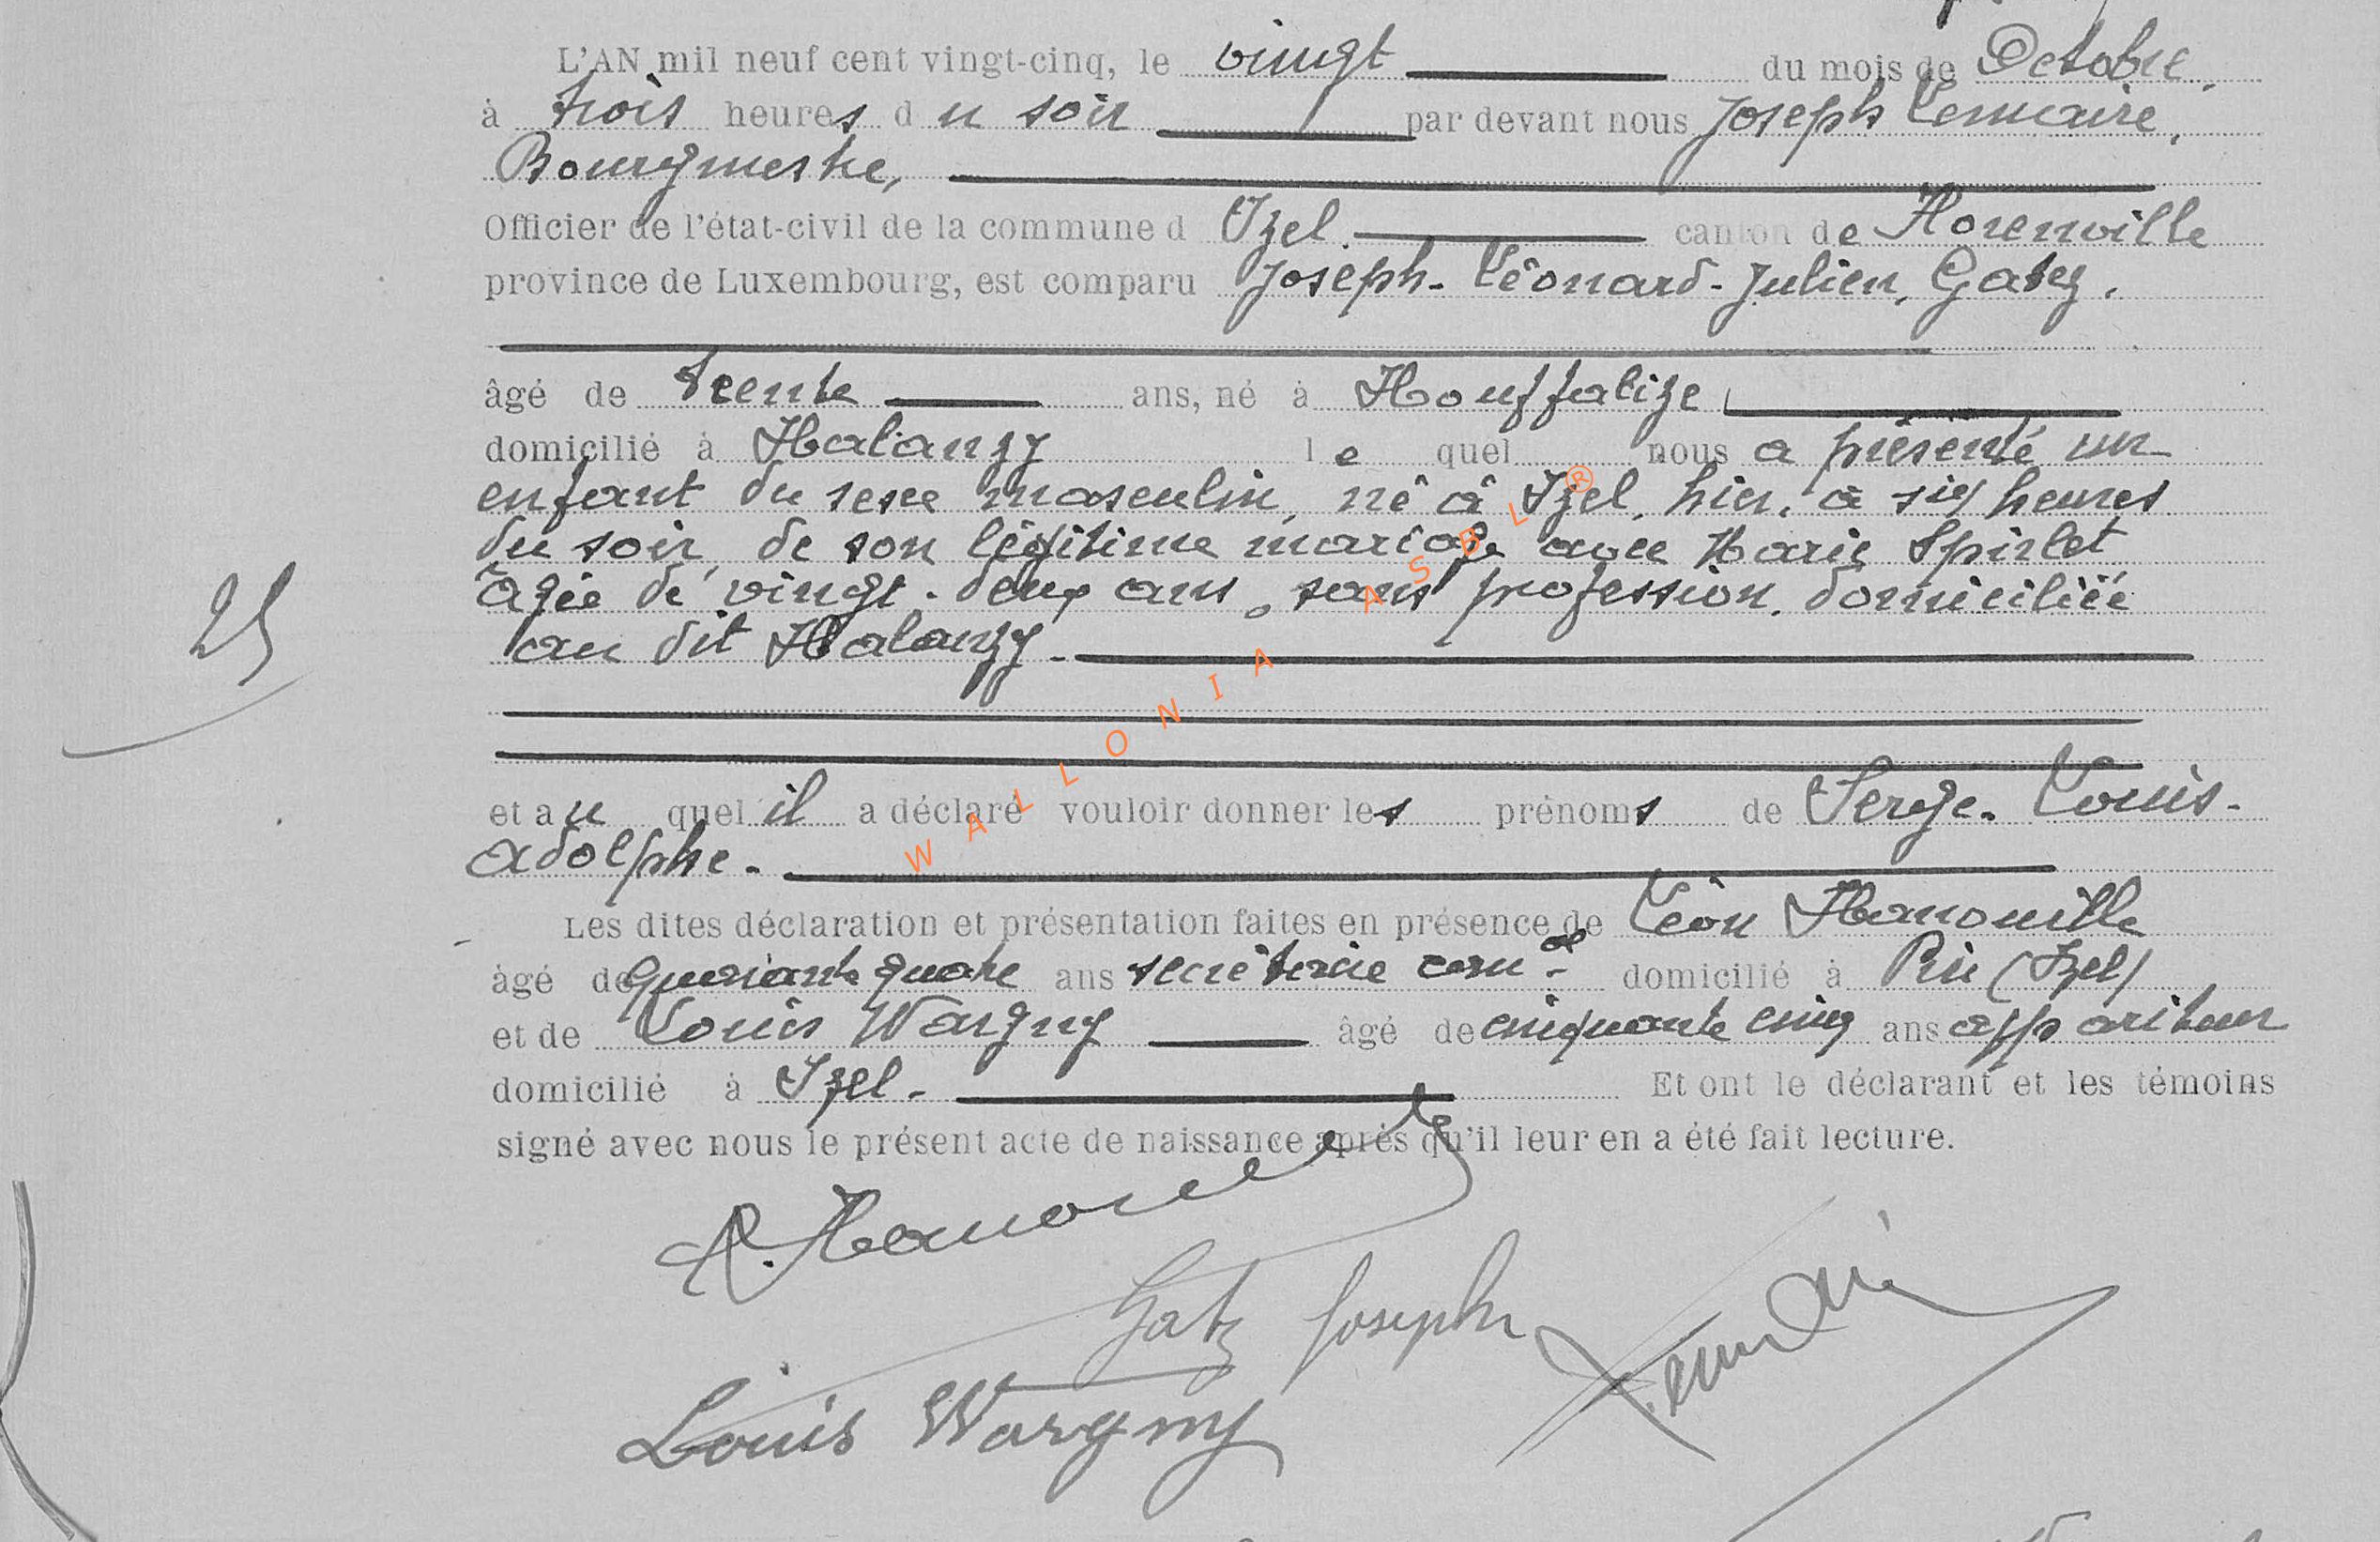 L'AN mil neuf cent vingt-cinq, le vingt du mois de Octobre,
à trois heures du soir par devant nous Joseph Lemaire,
Bourgmestre,
Officier de l'état-civil de la commune d Izel. canton de Florenville
province de Luxembourg, est comparu Joseph-Léonard-Julien, Gatz.
âgé de trente ans, né à Houffalize
domicilié à Halanzy lequel nous a présenté un
enfant du sexe masculin, né à Izel, hier, à six heures
du soir, de son légitime mariage avec Marie Spirlet
âgée de vingt-deux ans, sans profession, domiciliée
au dit Halanzy.
25
et au quel il a déclaré vouloir donner les prénoms de Serge-Louis-
Adolphe.
Les dites déclaration et présentation faites en présence de Léon Hanouille
âgé de quarante quatre ans secrétaire com al domicilié à Pin (Izel)
et de Louis Wargny âgé de cinquante cinq ans appariteur
domicilié à Izel. Et ont le déclarant et les témoins
signé avec nous le présent acte de naissance après qu'il leur en a été fait lecture.
Gatz Joseph
Lemaire
Louis Wargny
WALLONIA ASBL ®